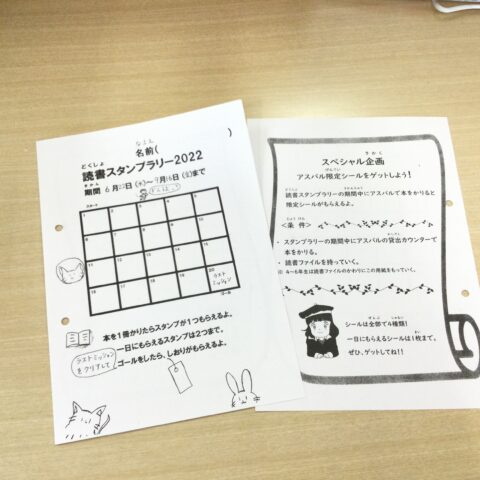 なまえ
名前( )
どくしょ
読書スタンプラリー2022
きかん
期間 6月22日(水)～9月16日(金)まで
がんばっ
スタート
1 2 3 4
5
6 7 8 9 10
11 12 13 14
15
16 17 18 19 20
ラスト
ミッション
ゴール
本を1冊かりたらスタンプが1つもらえるよ。
一日にもらえるスタンプは2つまで。
ラストミッション
をクリアして
ゴールをしたら、しおりがもらえるよ。
きかく
スペシャル企画
げんてい
アスパル限定シールをゲットしよう！
読書スタンプラリーの期間中にアスパルで本をかりると
限定シールがもらえるよ。
じょうけん
<条件>
・スタンプラリーの期間中にアスパルの貸出カウンターで
本をかりる。
・読書ファイルを持っていく。
※ 4～6年生は読書ファイルのかわりにこの用紙をもっていく。
シールは全部で4種類！
一日にもらえるシールは1枚まで。
ぜひ、ゲットしてね!!